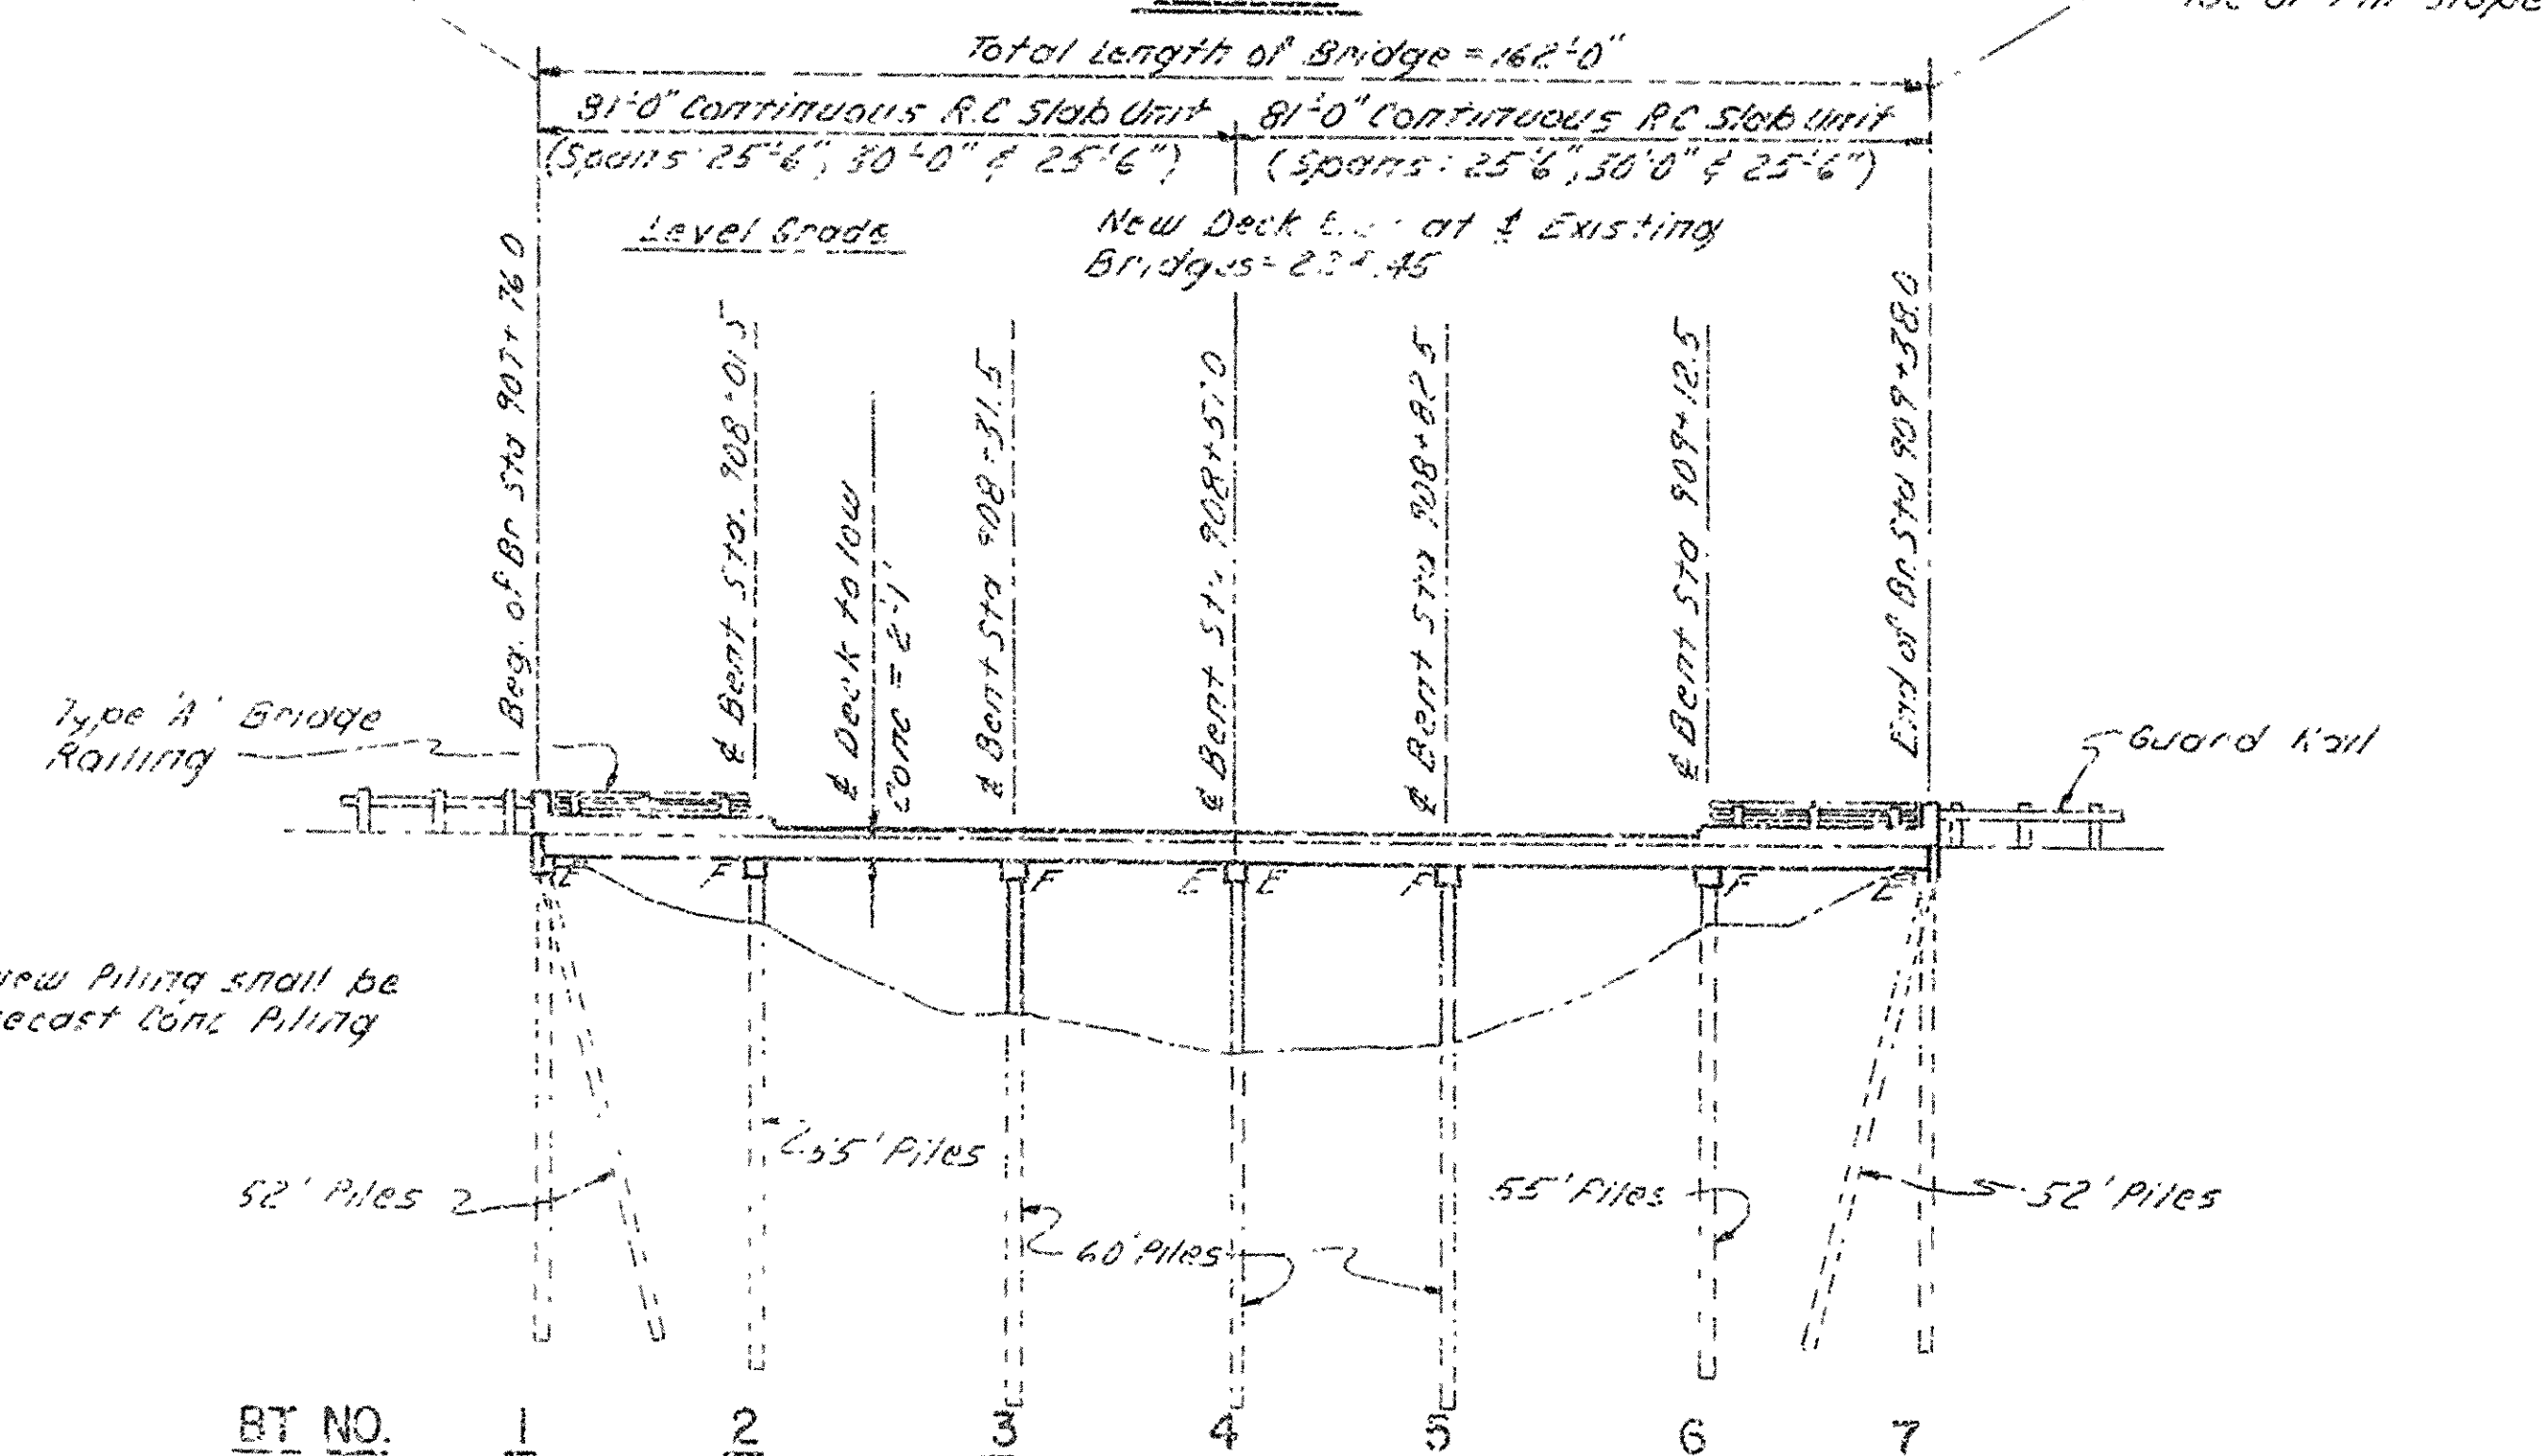 Total Length of Bridge = 162'-0"
81'-0" Continuous R.C. Slab Unit
(Spans: 25'-6", 30'-0" & 25'-6")
81'-0" Continuous R.C. Slab Unit
(Spans: 25'-6", 30'-0" & 25'-6")
Level Grade
New Deck at ℄ Existing
Bridges =
Beg. of Br Sta 907+76.0
℄ Bent Sta. 908+01.5
℄ Deck to low
Conc = 2'-1"
℄ Bent Sta 908+31.5
℄ Bent Sta. 908+57.0
℄ Bent Sta 908+82.5
℄ Bent Sta 909+12.5
End of Br. Sta 909+38.0
Type 'A' Bridge
Railing
Guard Rail
E F F E E F F E
New Piling shall be
Conc Piling
52' Piles
55' Piles
60' Piles
55' Piles
52' Piles
BT NO. 1 2 3 4 5 6 7